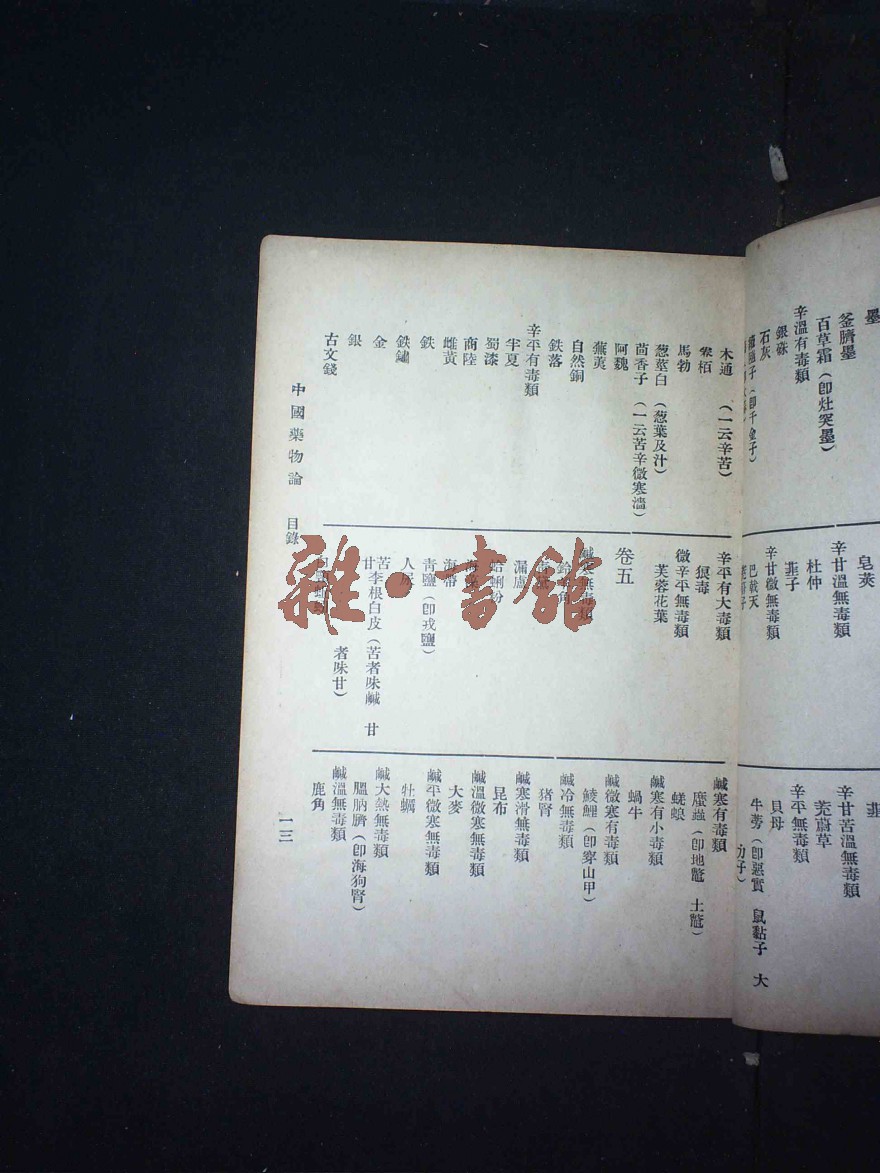 墨
釜臍墨
百草霜（卽灶突墨）
辛溫有毒類
銀硃
石灰
皂莢
辛甘溫無毒類
杜仲
韮子
辛甘微無毒類
巴戟天
韮
辛甘苦溫無毒類
茺蔚草
辛平無毒類
貝母
牛蒡（卽惡實　鼠黏子　大
力子）
木通　（一云辛苦）
馬勃
葱莖白（葱葉及汁）
茴香子（一云苦辛微寒濇）
阿魏
蕪荑
自然銅
鉄落
辛平有毒類
半夏
蜀漆
商陸
雌黃
鉄
鉄鏽
金
銀
古文錢
辛平有大毒類
狼毒
微辛平無毒類
芙蓉花葉
卷五
鹹無毒類
漏盧
蛤蜊粉
海帶
青鹽（卽戎鹽）
人尿
苦李根白皮（苦者味鹹　甘
甘
者味甘）
鹹寒有毒類
䗪蟲（卽地鼈　土鼈）
蜣蜋
鹹寒有小毒類
蝸牛
鹹微寒有毒類
鯪鯉（卽穿山甲）
鹹冷無毒類
猪腎
鹹寒滑無毒類
昆布
鹹溫微寒無毒類
大麥
鹹平微寒無毒類
牡蠣
鹹大熱無毒類
膃肭臍（卽海狗腎）
鹹溫無毒類
鹿角
中國藥物論　目錄
一三
雜·書館